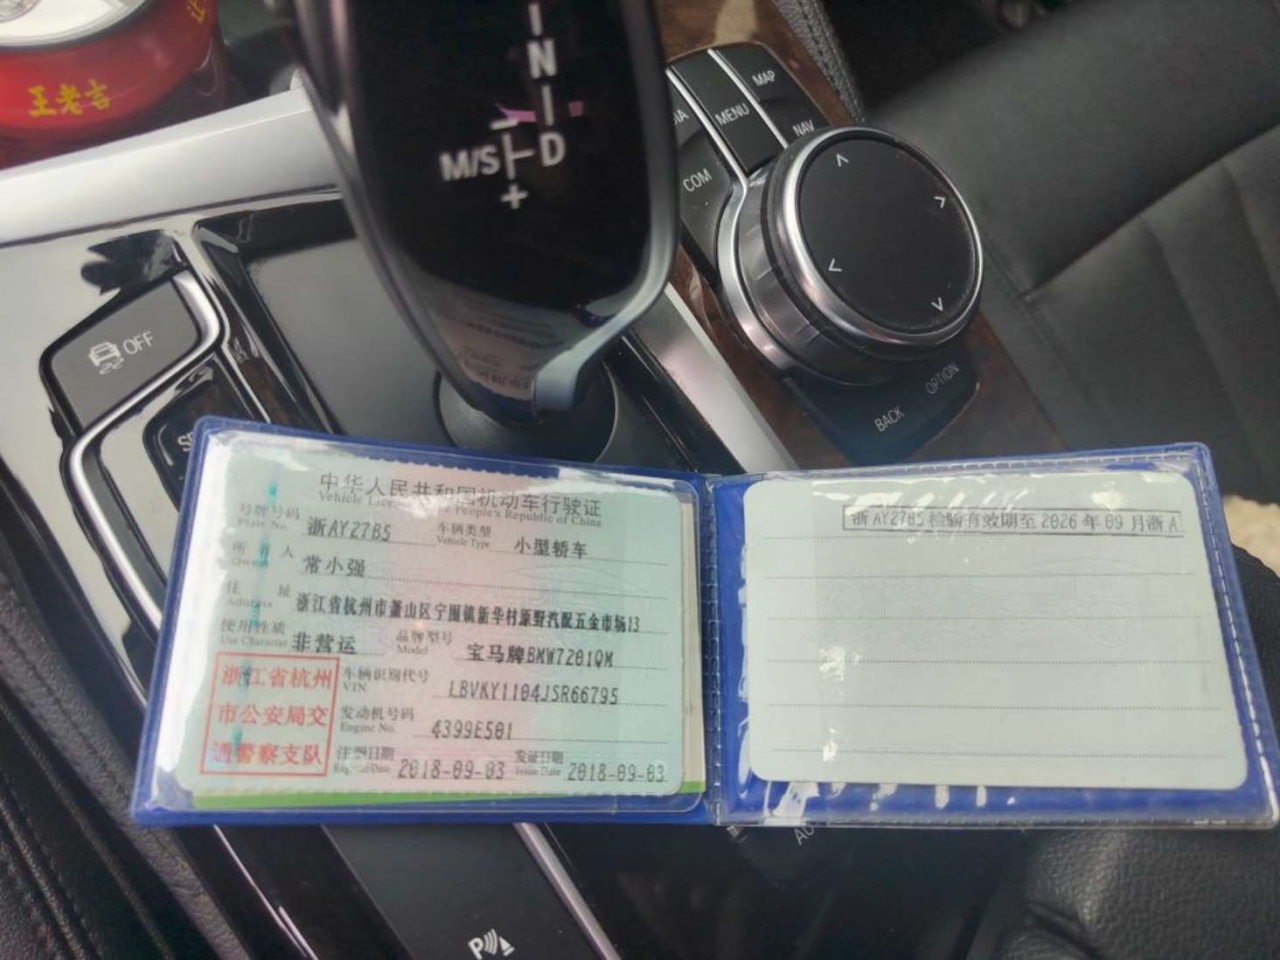 王老吉
N
M/S D
+
MAP
MENU
NAV
COM
OFF
BACK
OPTION
中华人民共和国机动车行驶证
Vehicle License of the People's Republic of China
号牌号码 浙AY27B5 车辆类型 小型轿车
Plate No. Vehicle Type
所有人 常小强
Owner
住址 浙江省杭州市萧山区宁围镇新华村原野汽配五金市场13
Address
使用性质 非营运 品牌型号 宝马牌BMW7201QM
Use Character Model
浙江省杭州
市公安局交
通警察支队
车辆识别代号 LBVKY1104JSR66795
VIN
发动机号码 4399E501
Engine No.
注册日期 2018-09-03 发证日期 2018-09-03
Register Date Issue Date
浙AY27B5 检验有效期至 2026 年 09 月浙A
P